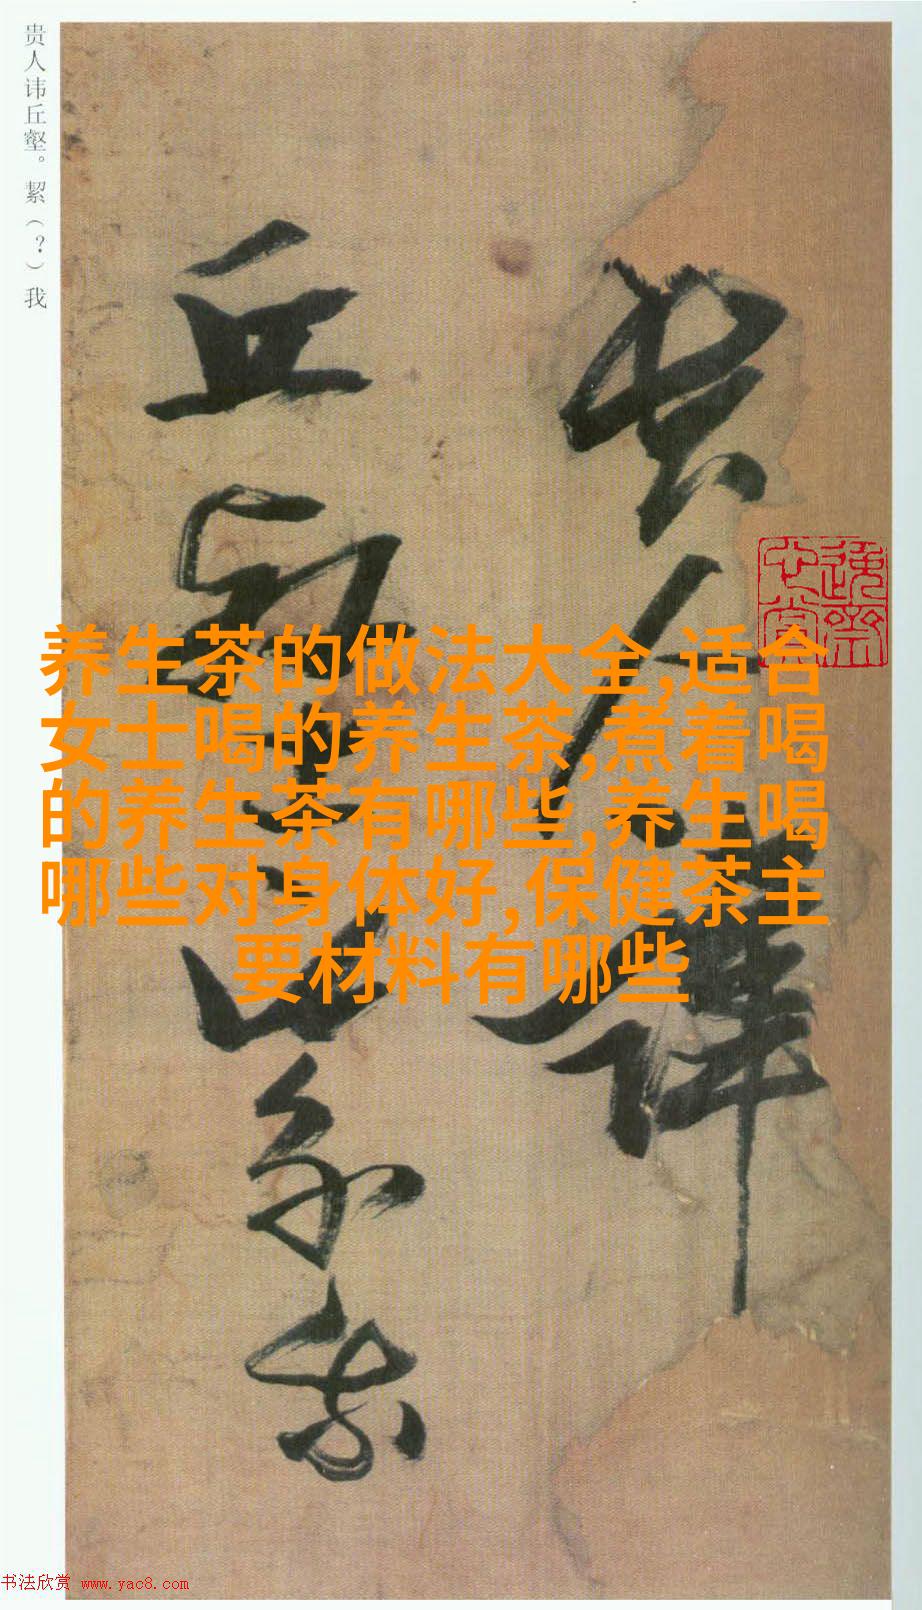 贵人讳丘壑。絜（？）我
养生茶的做法大全,适合
女士喝的养生茶,煮着喝
的养生茶有哪些,养生喝
哪些对身体好,保健茶主
要材料有哪些
贵人讳
丘壑
絜我
书法欣赏 www.yac8.com